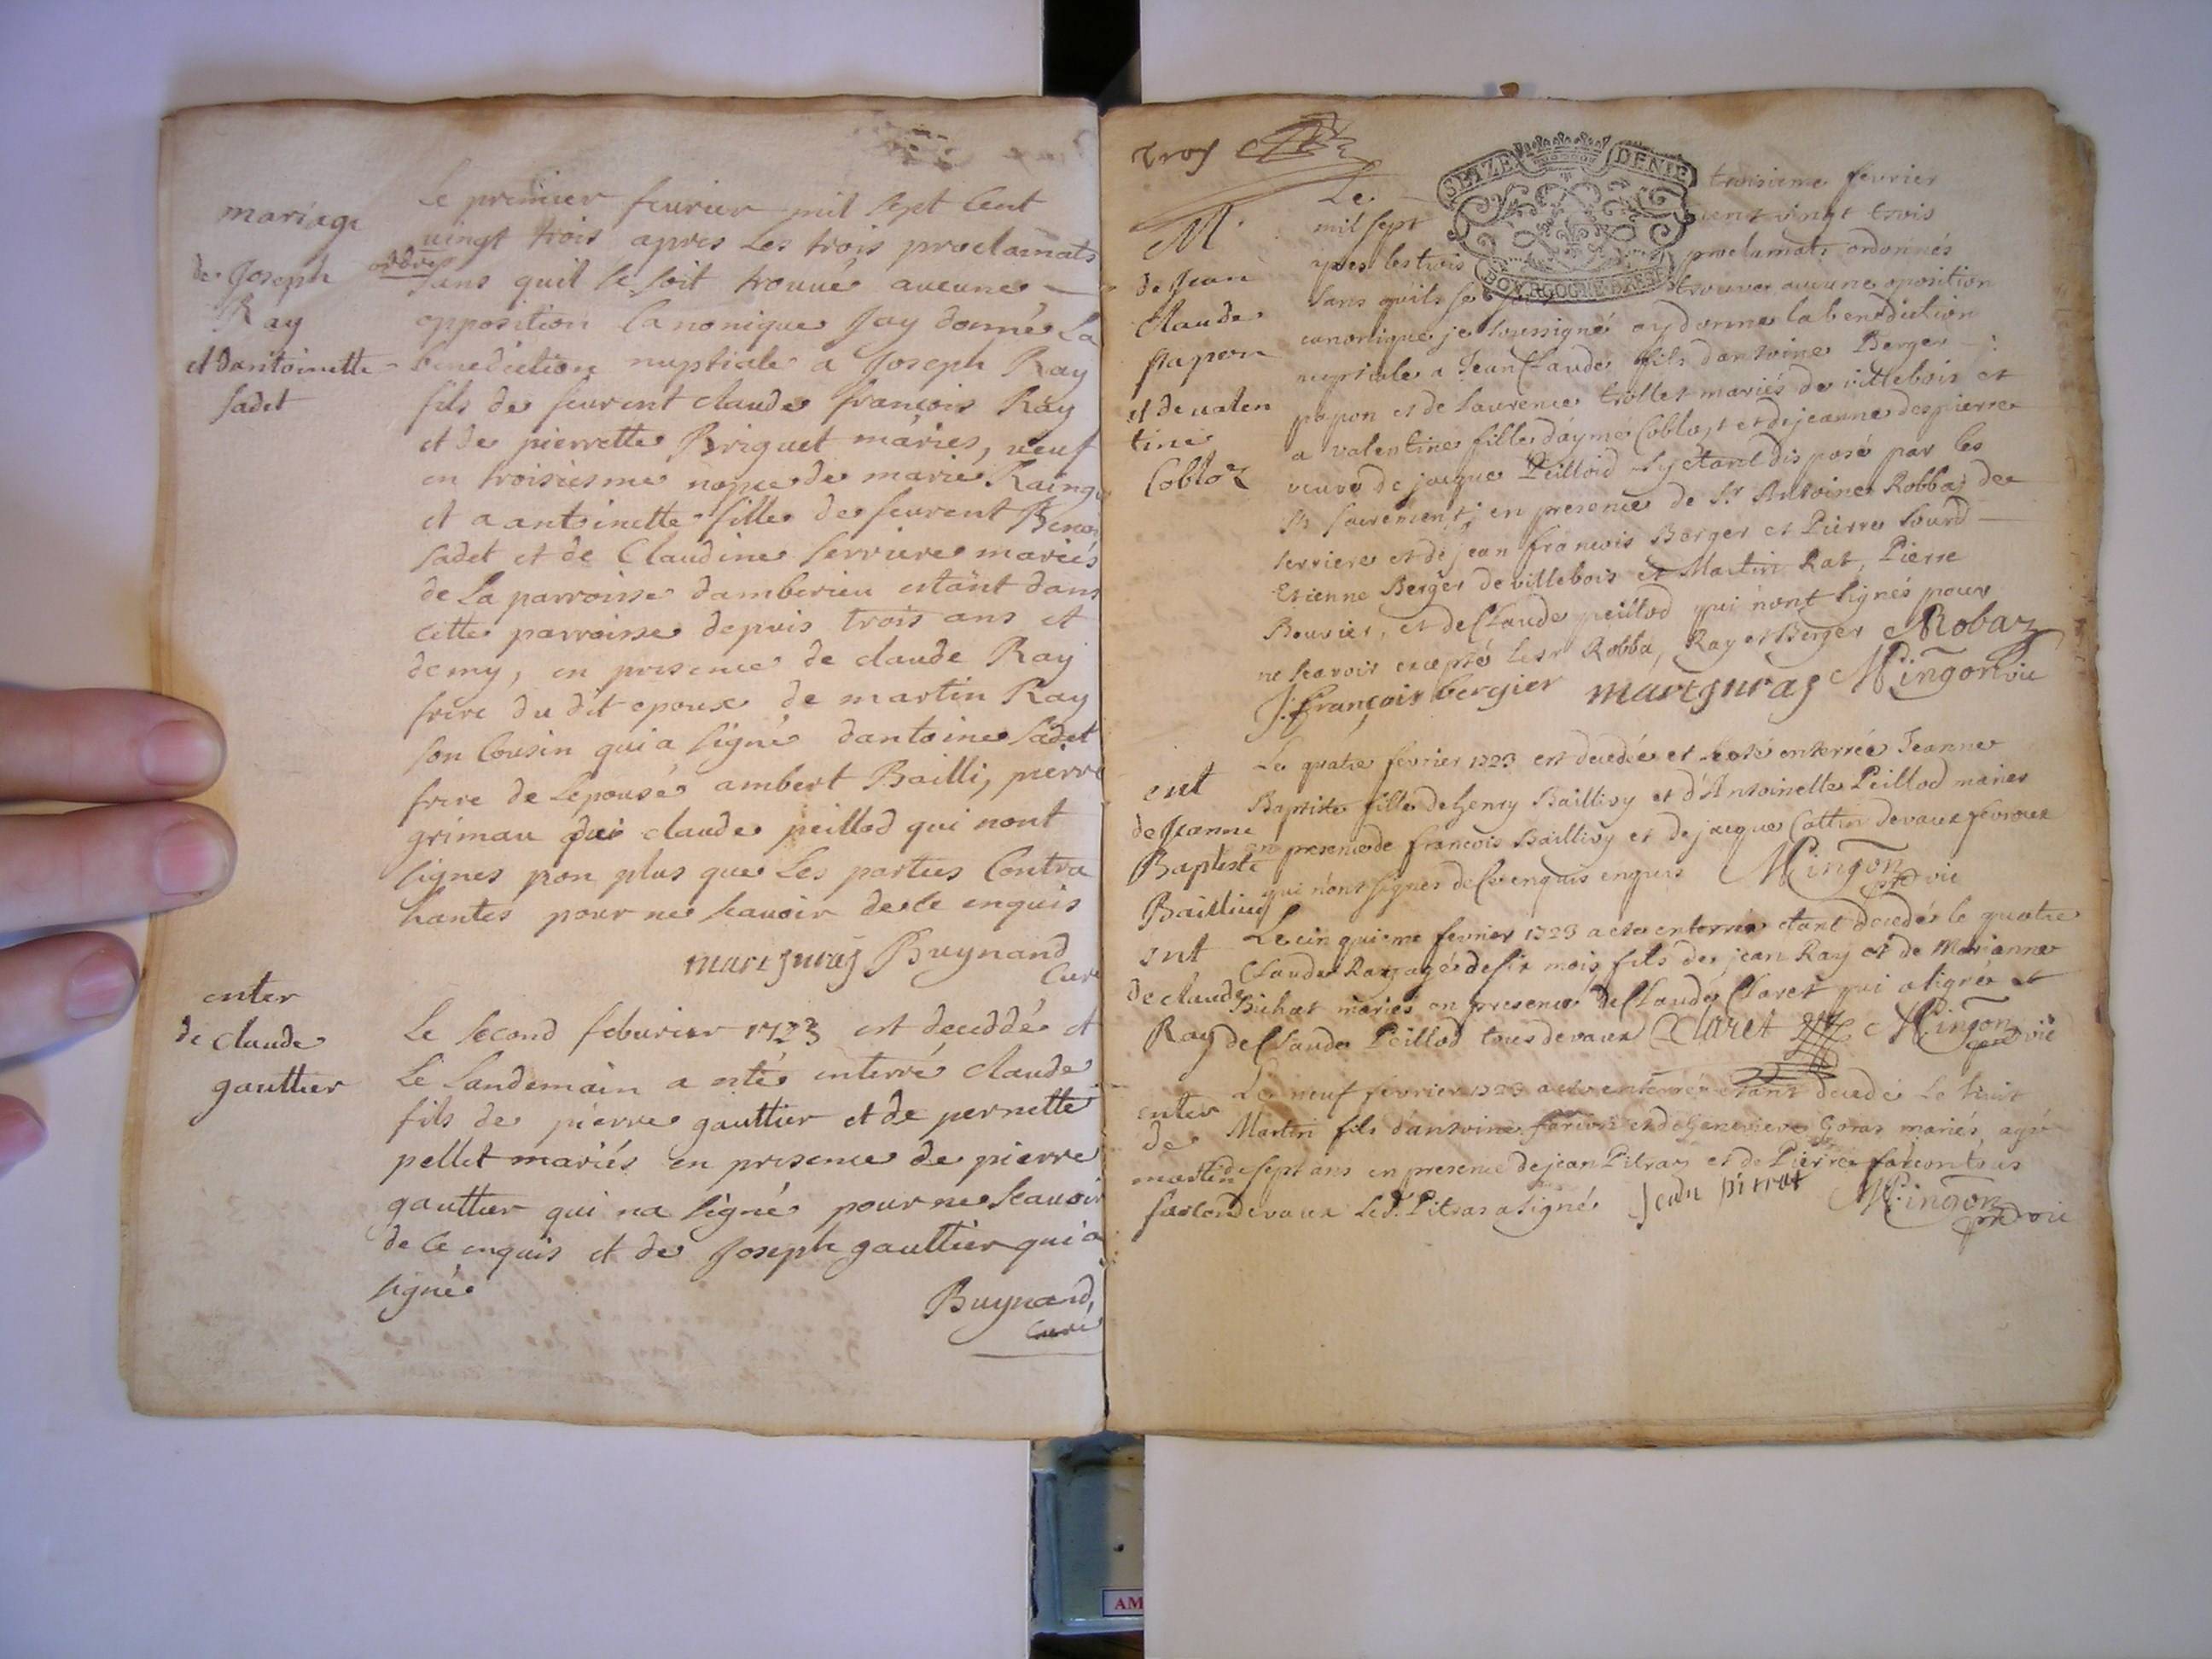 mariage
de Joseph
Ray
et dantoinette
sadet
Le premier feurier mil sept Cent
uingt trois apres Les trois proclamats
ordres
sans quil se soit trouué aucune
opposition Canonique Jay donné La
benediction nuptiale a Joseph Ray
fils de feurent claude francois Ray
et de pierrette Briguet mariés, ueuf
en troisiesme nopce de marie
et a antoinette fille de feurent
sadet et de Claudine serriere mariés
de La parroisse damberieu estant dans
cette parroisse depuis trois ans et
demy, en presence de claude Ray
frere du dit epoux de martin Ray
son Cousin qui a signé dantoine sadet
frere de Lepouse ambert Bailli, pierre
grimau claude peillod qui nont
signes non plus que Les parties Contra
hantes pour ne scauoir de ce enquis
Buynand
Curé
enter
de claude
gauttier
Le second feburier 1723 est deceddé et
Le Landemain a esté enterré claude
fils de pierre gauttier et de pernette
pellet mariés en presence de pierre
gauttier qui na signé pour ne scauoir
de ce enquis et de Joseph gauttier qui a
signé
Buynand,
Curé
Trois
M.
de Jean
Claude
papon
et de ualen
tine
Cobloz
SEIZE DENIE
BOVRGOGNE BRES
Le troisieme fevrier
mil sept cent vingt trois
apres les trois proclamats ordonnés
sans qu'ils se trouver aucune oposition
canonique je soussigné ay donné la benediction
nuptiale a Jean Claude fils dantoine Berger
papon et de Laurence trollet mariés de villebois et
a valentine fille daymé Cobloz et de jeanne despierre
veuve de jacque Peilloid sy etant disposé par les
Sts sacrements; en presence de Sr Antoine Robbaz de
serriere et de jean francois Berger et Pierre sourd
Etienne Berger de villebois et Martin Rat, Pierre
Bouvier, et de Claude peillod qui n'ont signés pour
ne scavoir excepté les Robba, Ray et Berger Robaz
J. françois bergier Mingon vic
ent
de Jeanne
Baptiste
Baillivy
Le quatre février 1723 est decedée et a eté enterrée Jeanne
Baptiste fille de henry Baillivy et d'Antoinette Peillod mariés
en presence de francois Baillivy et de jacque Cottin de vaux fevroux
qui n'ont signés de ce enquis enquis Mingon vic
ent
de claude
Ray
Le cinquieme fevrier 1723 a eté enterré etant decedé le quatre
Claude Ray agé de six mois fils de jean Ray et de Marianne
Bichat mariés en presence de Claude Claret qui a signé et
de Claude Peillod tous de vaux Claret Mingon vic
enter
de
martin
farcon
Le neuf fevrier 1723 a eté enterré etant decedé le huit
Martin fils d'antoine farcon et de Genevieve Goras mariés, agé
de sept ans en presence de jean Pitraz et de Pierre farcon tous
de vaux Le Sr. Pitras a signé Jean pitrat Mingon vic
AM